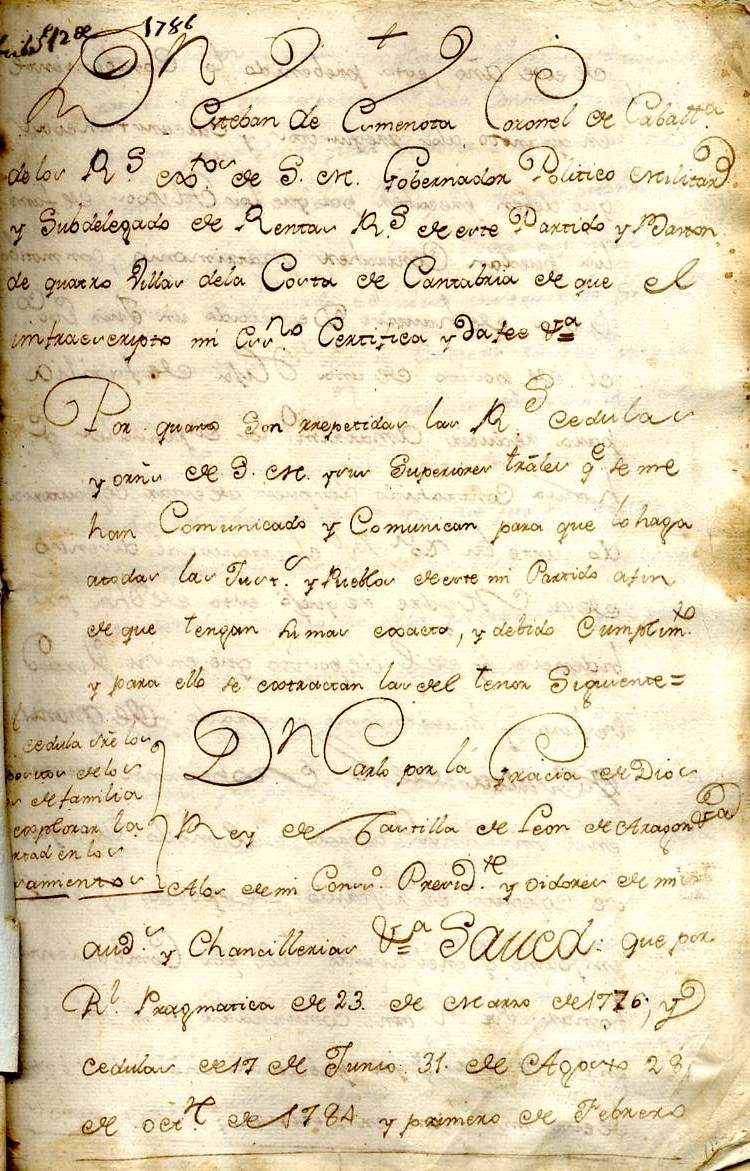 1786
Dn
Esteban de Cimenota Coronel de Caballa.
de los Rs. Extos de S. M. Governador Politico Militar
y Subdelegado de Rentas Rs de este Partido y Baston
de quatro Villas dela Costa de Cantabria de que el
infraescripto mi Essno Certifica y da fee &a
Por quanto son rrepetidas las Rs cedulas
y orns de S. M. y sus Superiores tráles qe se me
han Comunicado y Comunican para que lo haga
atodas las Just.s y Pueblos de este mi Partido afin
de que tengan su mas exacto, y debido Cumplimto.
y para ello se extractan las del tenor Siguiente =
cedula sre los
de los
de familia
explorar la
en los
samientos
Dn Carlo por la Gracia de Dios
Rey de Castilla de Leon de Aragon &a
Alos de mi Conso. Presidte y oidores de mi
auds y Chancillerias &a Saved: que por
Rl Pragmatica de 23. de Marzo de 1776, y
cedulas de 17 de Junio 31. de Agosto 28,
de octre de 1784 y primero de Febrero